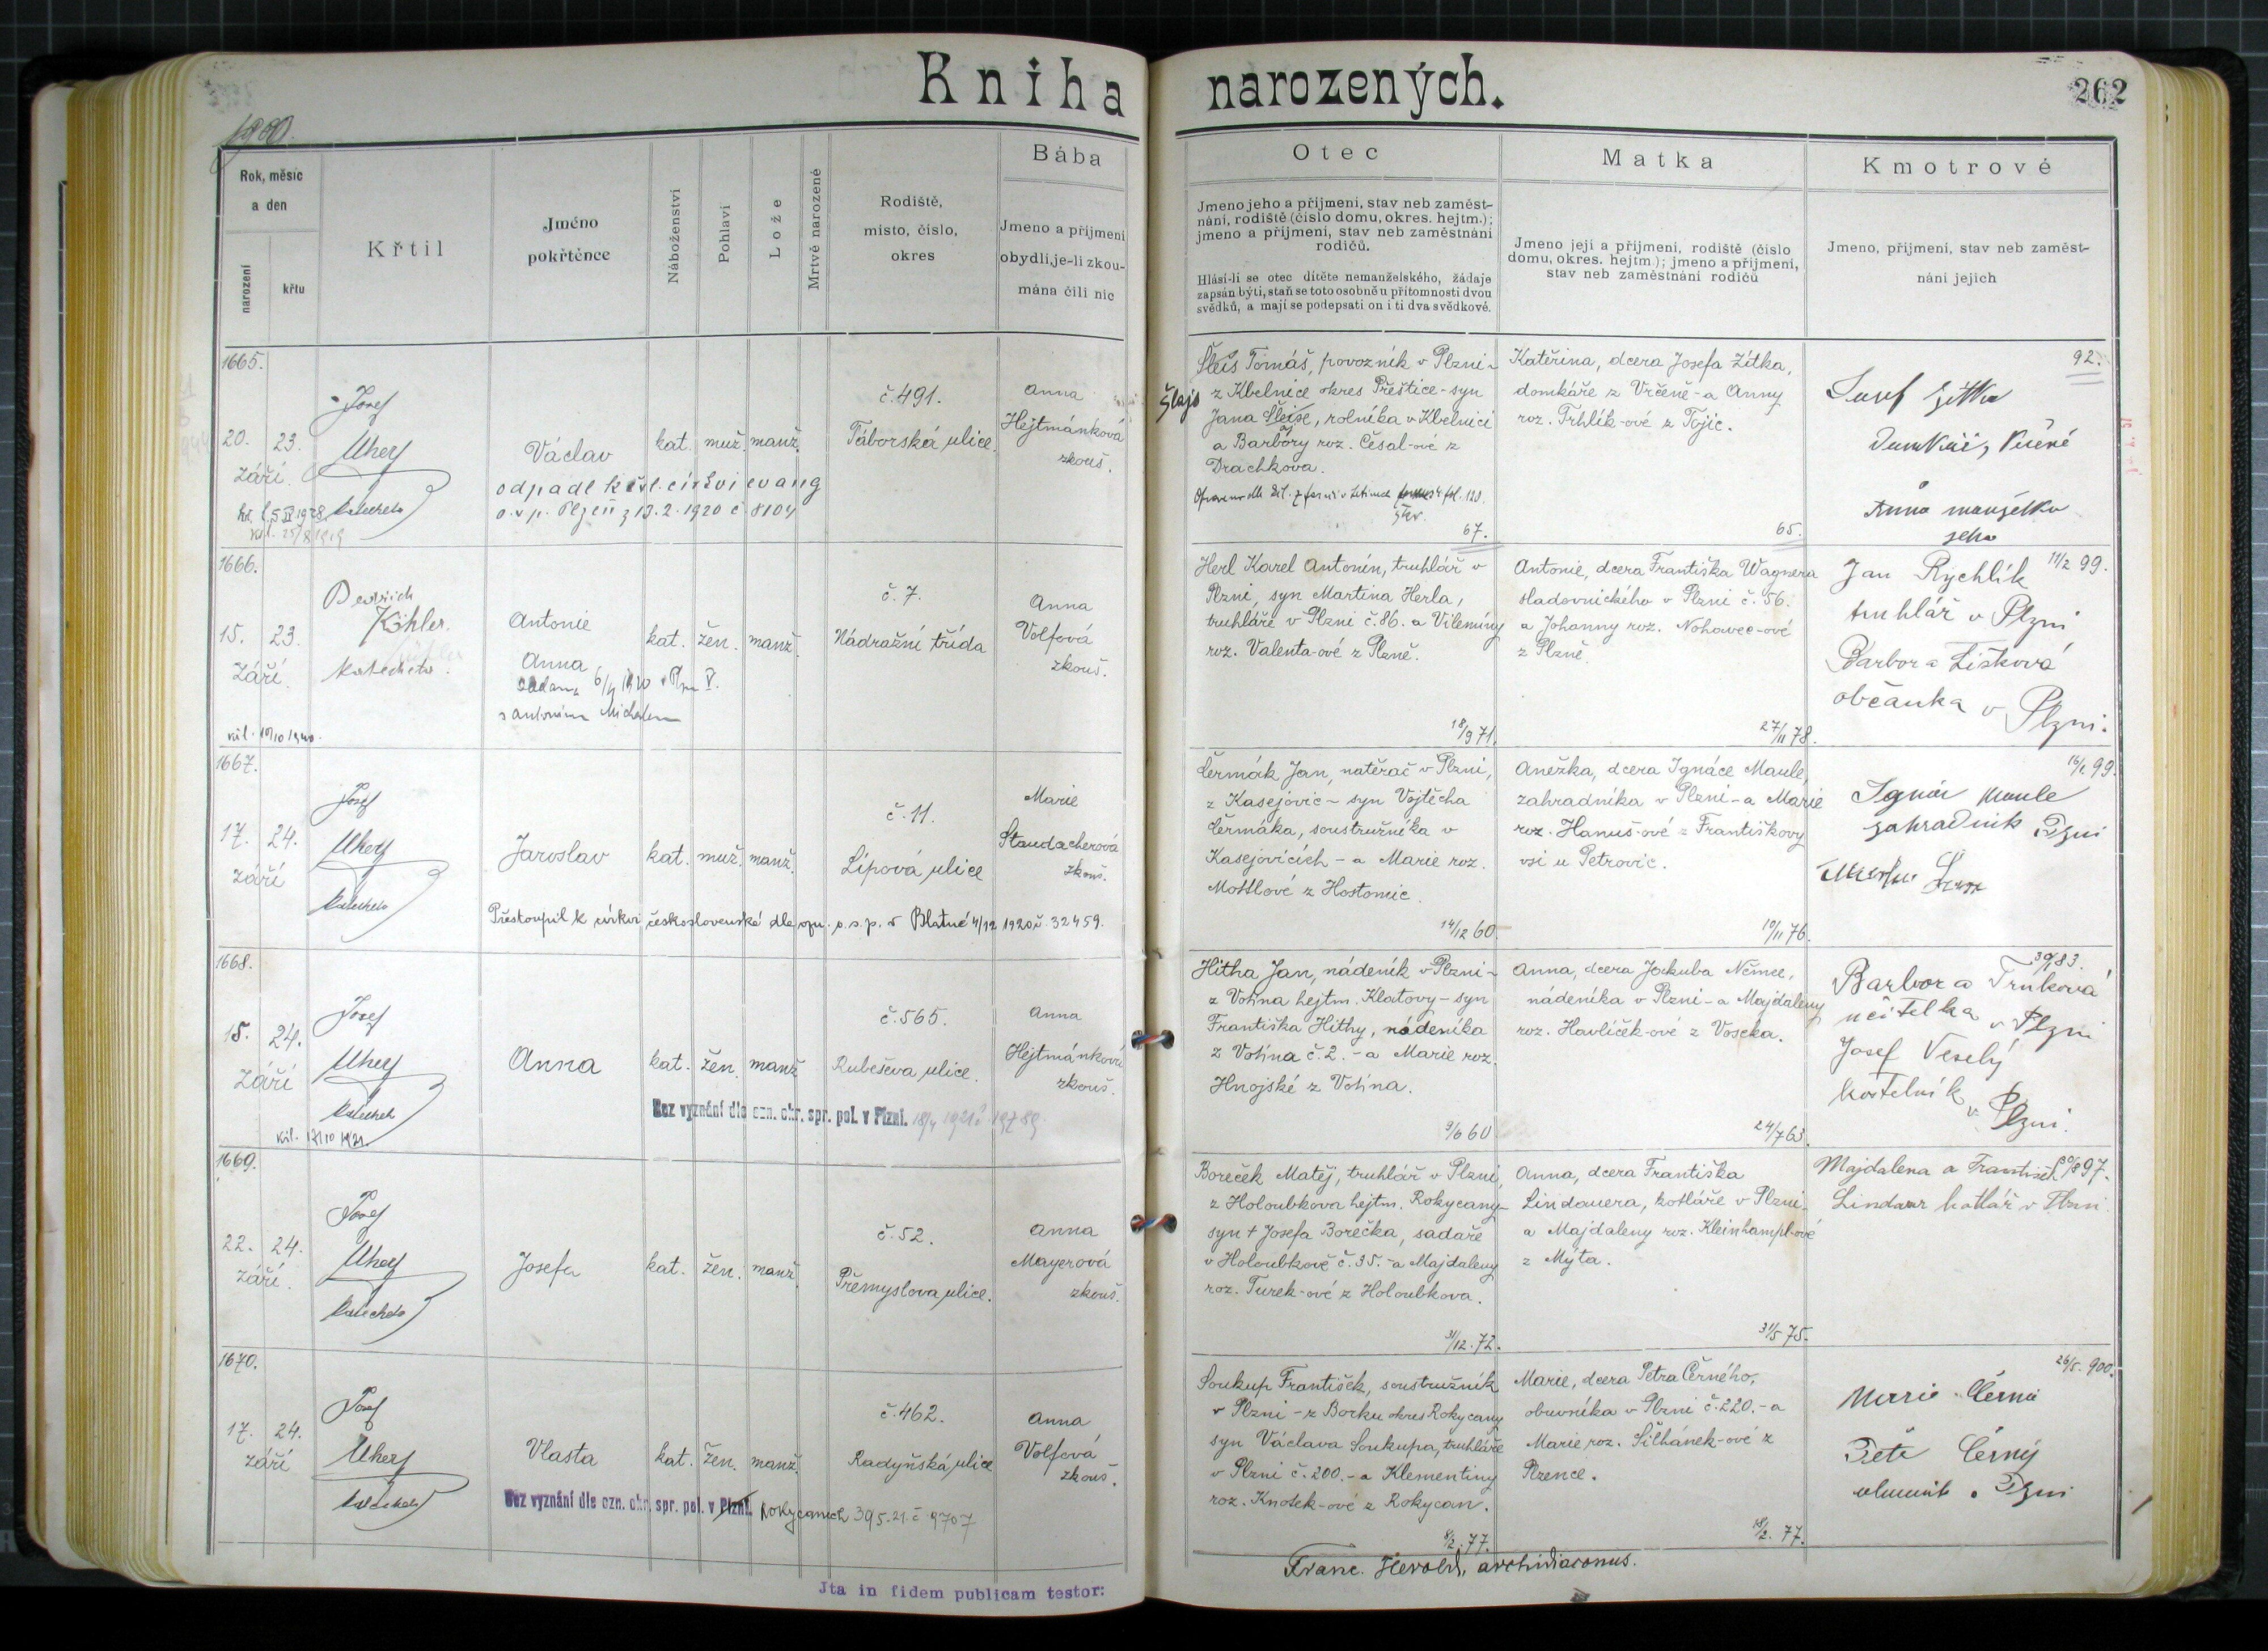 Kniha narozených.
262
1900.
Rok, měsíc
a den
narození
křtu
Křtil
Jméno
pokřtěnce
Náboženství
Pohlaví
Lože
Mrtvě narozené
Rodiště,
místo, číslo,
okres
Bába
Jmeno a příjmení
obydlí, je-li zkou-
mána čili nic
Otec
Jmeno jeho a příjmení, stav neb zaměst-
nání, rodiště (číslo domu, okres. hejtm.);
jmeno a příjmení, stav neb zaměstnání
rodičů.
Hlásí-li se otec dítěte nemanželského, žádaje
zapsán býti, staň se toto osobně u přítomnosti dvou
svědků, a mají se podepsati on i ti dva svědkové.
Matka
Jmeno její a příjmení, rodiště (číslo
domu, okres. hejtm.); jmeno a příjmení,
stav neb zaměstnání rodičů
Kmotrové
Jmeno, příjmení, stav neb zaměst-
nání jejich
1665.
20. 23.
září.
Josef
Uherf
katecheta
Václav
odpadl k čsl. církvi evang
o.s.p. Plzeň z 13.2.1920 č 8104
kat. muž. manž.
č. 491.
Táborská ulice.
Anna
Hejtmánková
zkouš.
Šleis Tomáš, povozník v Plzni-
Šlajs
z Kbelnice okres Přeštice - syn
Jana Šleise, rolníka v Kbelnici
a Barbory roz. Česal-ové z
Drachkova.
67.
Kateřina, dcera Josefa Zítka,
domkáře z Vrčeně - a Anny
roz. Trhlík-ové z Tojic.
65.
92.
Josef Zítka
Anna manželka
jeho
1666.
15. 23.
září.
kůl. 19/10 1940.
Bedřich
Köhler.
katecheta.
Antonie
Anna
oddána 6/4 1920 v Plzni V.
s Antonínem Michalem
kat. žen. manž.
č. 7.
Nádražní třída
Anna
Volfová
zkouš.
Herl Karel Antonín, truhlář v
Plzni, syn Martina Herla,
truhláře v Plzni č. 86. a Vilemíny
roz. Valenta-ové z Plzně.
18/9 71.
Antonie, dcera Františka Wagnera
sladovnického v Plzni č. 56.
a Johanny roz. Nohavec-ové
z Plzně.
27/11 78.
11/2 99.
Jan Rychlík
truhlář v Plzni
Barbora Lišková
občanka v Plzni.
1667.
17. 24.
září
Josef
Uherf
katecheta
Jaroslav
kat. muž. manž.
č. 11.
Lípová ulice
Marie
Staudacherová
zkouš.
Přestoupil k církvi československé dle ozn. o.s.p. v Blatné 4/12 1920 č. 32459.
Čermák Jan, natěrač v Plzni,
z Kasejovic - syn Vojtěcha
Čermáka, soustružníka v
Kasejovicích - a Marie roz.
Mottlové z Hostomic.
14/12 60.
Anežka, dcera Ignáce Maule,
zahradníka v Plzni - a Marie
roz. Hanuš-ové z Františkovy
vsi u Petrovic.
10/11 76.
16/1. 99.
Ignác Maule
zahradník Plzni
1668.
18. 24.
září
kůl. 17/10 1921.
Josef
Uherf
katecheta
Anna
kat. žen. manž
č. 565.
Rubešova ulice.
Anna
Hejtmánková
zkouš.
Bez vyznání dle ozn. okr. spr. pol. v Plzni. 18/4 1921 č 19789.
Hitha Jan, nádeník v Plzni-
z Votína hejtm. Klatovy - syn
Františka Hithy, nádeníka
z Votína č. 2. - a Marie roz.
Hnojské z Votína.
9/6 60
Anna, dcera Jakuba Němce,
nádeníka v Plzni - a Majdaleny
roz. Havlíček-ové z Voseka.
24/7 63.
Barbora Trnková
učitelka v Plzni
Josef Veselý
kostelník
v Plzni.
1669.
22. 24.
září.
Josef
Uherf
katecheta
Josefa
kat. žen. manž.
č. 52.
Přemyslova ulice.
Anna
Mayerová
zkouš.
Boreček Matěj, truhlář v Plzni,
z Holoubkova hejtm. Rokycany-
syn + Josefa Borečka, sadaře
v Holoubkově č. 35. - a Majdaleny
roz. Turek-ové z Holoubkova.
31/12. 72.
Anna, dcera Františka
Lindauera, kotláře v Plzni-
a Majdaleny roz. Kleinhampl-ové
z Mýta.
31/5 75.
30/8 97.
Majdalena a František
Lindaur kotlář v Plzni.
1670.
17. 24.
září
Josef
Uherf
katecheta
Vlasta
kat. žen. manž.
č. 462.
Radyňská ulice
Anna
Volfová
zkouš.
Bez vyznání dle ozn. okr. spr. pol. v Plzni. Rokycanech 395.21. č 9707
Soukup František, soustružník
v Plzni - z Borku okres Rokycany
syn Václava Soukupa, truhláře
v Plzni č. 200. - a Klementiny
roz. Knotek-ové z Rokycan.
8/2. 77.
Marie, dcera Petra Černého,
obuvníka v Plzni č. 220. - a
Marie roz. Šilhánek-ové z
Plzence.
18/2. 77.
26/5. 900.
Marie Černá
Petr Černý
obuvník v Plzni
Franc. Herold, archidiaconus.
Jta in fidem publicam testor: